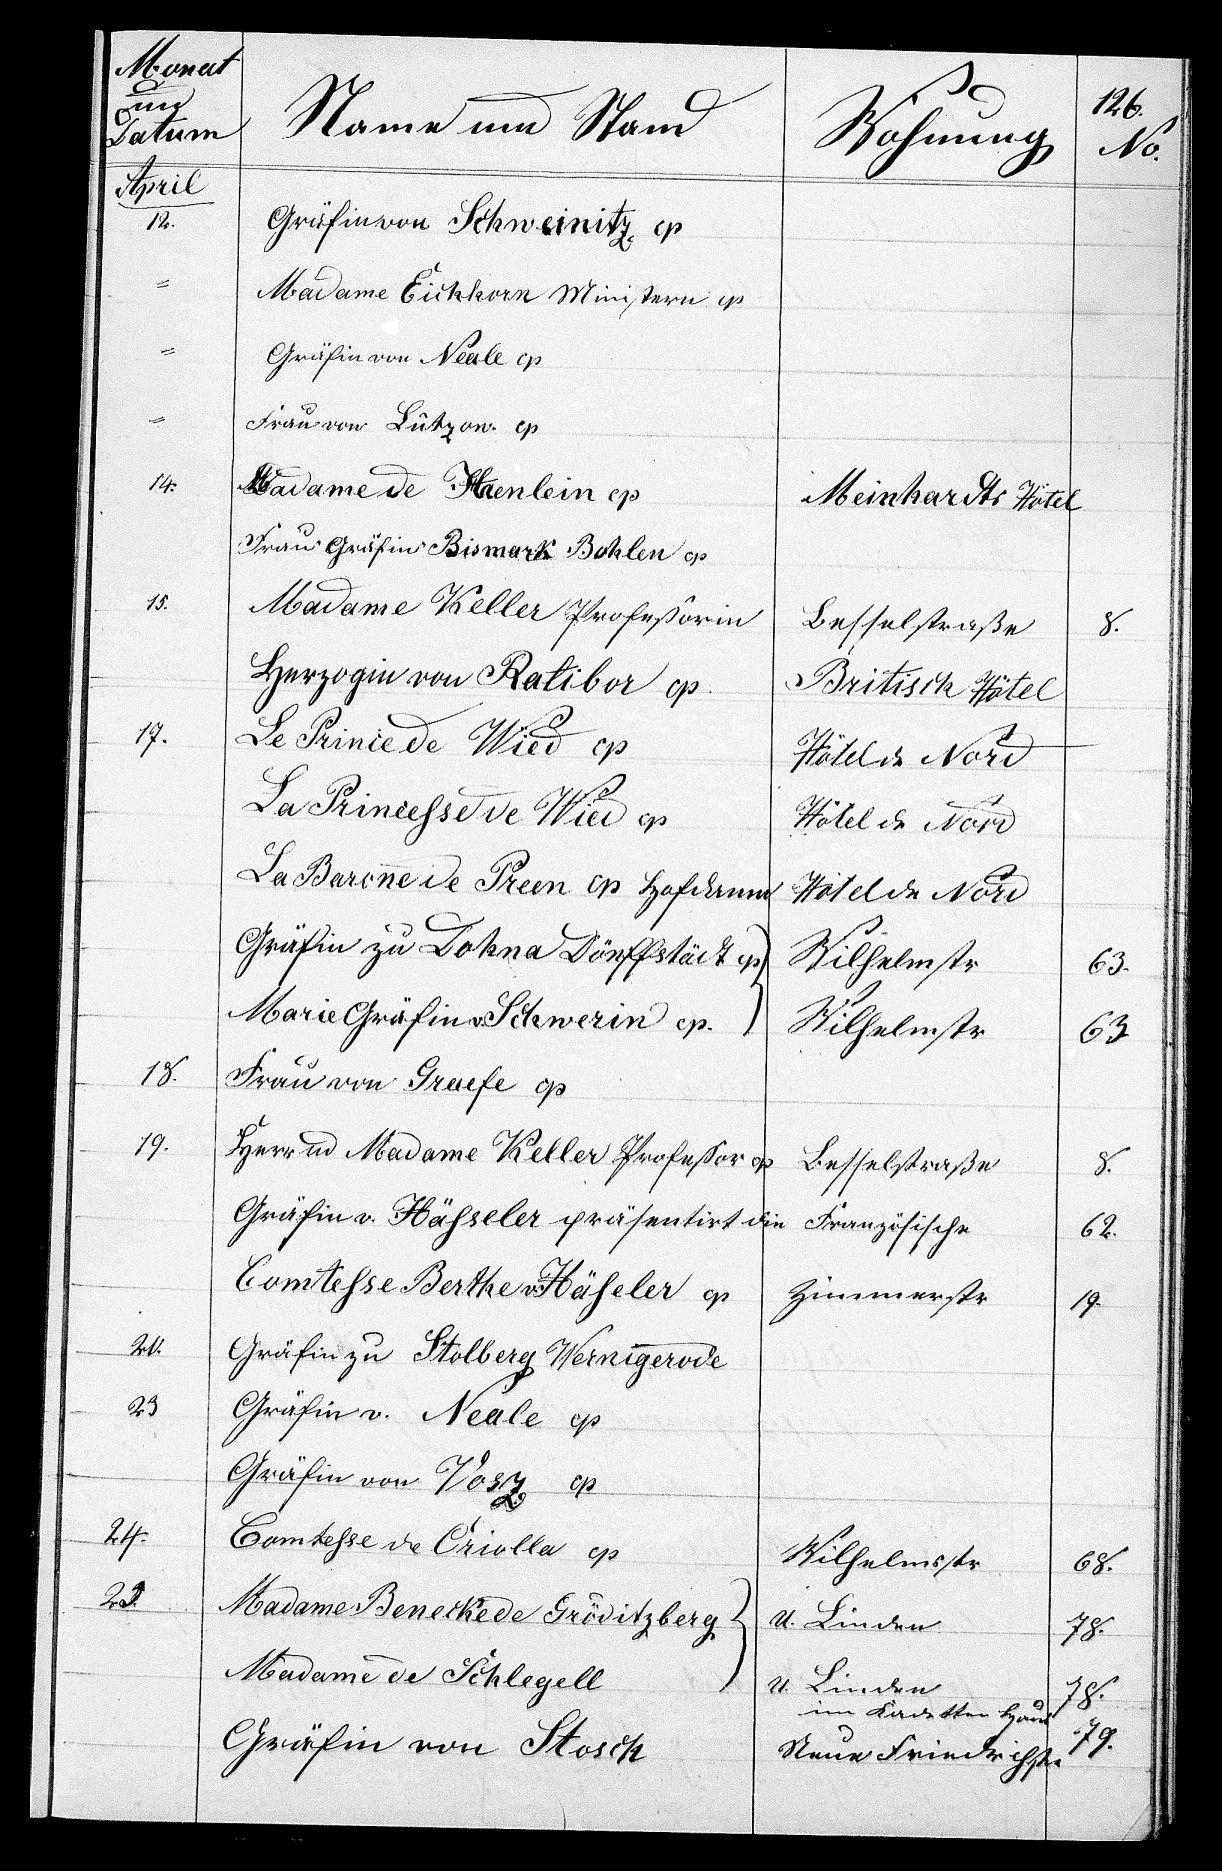 126.
Monat und Datum Name und Stand Wohnung No.
April
12. Gräfin von Schweinitz cp
" Madame Eichhorn Ministern cp
" Gräfin von Neale cp
" Frau von Lützow. cp
14. Madame de Haenlein cp Meinhardts Hôtel
Frau Gräfin Bismark Bohlen cp
15. Madame Keller Professorin Besselstraße 8.
Herzogin von Ratibor cp. Britisch Hôtel
17. Le Prince de Wied cp Hôtel de Nord
La Princesse de Wied cp Hôtel de Nord
La Baronne de Preen cp Hofdame Hôtel de Nord
Gräfin zu Dohna cp Wilhelmstr 63.
Marie Gräfin v. Schwerin cp. Wilhelmstr 63
18. Frau von Graefe cp
19. Herr und Madame Keller Professor cp Besselstraße 8.
Gräfin v. Häßseler präsentirt die Französische 62.
Comtesse Berthe v. Häßeler cp Zimmerstr 19.
21. Gräfin zu Stolberg Wernigerode
23 Gräfin v. Neale cp
Gräfin von Vosz cp
24. Comtesse de Oriolla cp Wilhelmsstr 68.
25 Madame Benecke de Gröditzberg U. Linden 78.
Madame de Schlegell U. Linden 78.
im Kadetten Haus
Gräfin von Stosch Neue Friedrichstr 79.